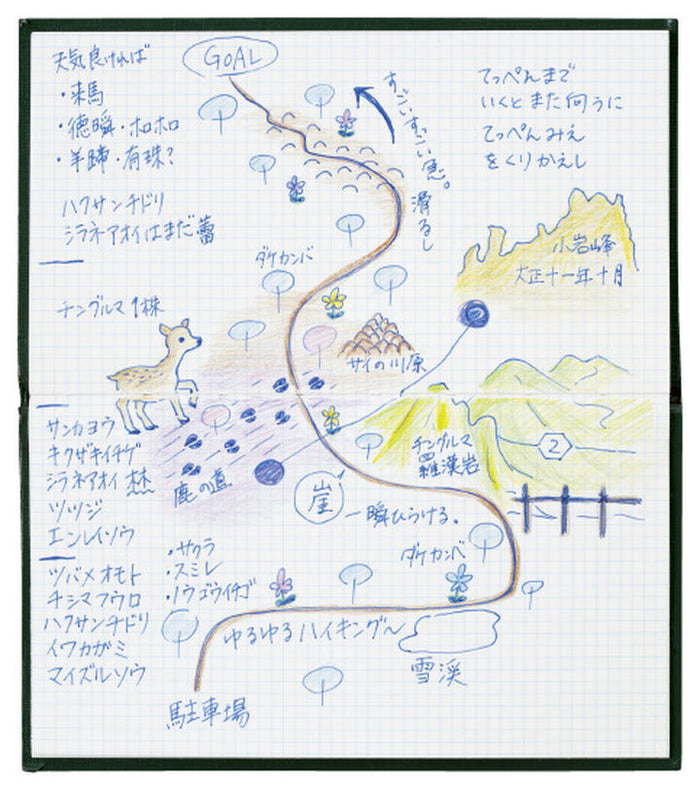 天気良ければ
・来馬
・徳瞬・ホロホロ
・羊蹄・有珠?
ハクサンチドリ
シラネアオイはまだ蕾
GOAL
すごいすごい急。
滑るし
てっぺんまで
いくとまた向うに
てっぺんみえ
をくりかえし
小岩峰
大正十一年十月
ダケカンバ
チングルマ1株
サイの川原
サンカヨウ
キクザキイチゲ
シラネアオイ
ツツジ
エンレイソウ
鹿の道
チングルマ
羅漢岩
2
崖
一瞬ひらける。
ダケカンバ
ツバメオモト
チシマフウロ
ハクサンチドリ
イワカガミ
マイズルソウ
・サクラ
・スミレ
・ノウゴウイチゴ
ゆるゆるハイキング〜
雪渓
駐車場